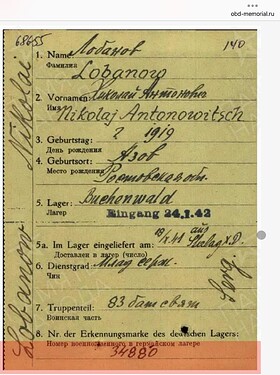 obd-memorial.ru
68655
140
1. Name: Лобанов
Фамилия
Lobanow
2. Vornamen: Николай Антонович
Имя
Nikolaj Antonowitsch
3. Geburtstag: ? 1919
День рождения
4. Geburtsort: Азов
Место рождения
Ростовская
5. Lager: Buchenwald
Лагер
Eingang 24.1.42
5a. Im Lager eingeliefert am:
Доставлен в лагер (число)
6. Dienstgrad: Млад серж.
Чин
7. Truppenteil: 83 бат связи
Воинская часть
8. Nr. der Erkennungsmarke des deutschen Lagers:
Номер военнопленного в германском лагере
34880
Lobanow Nikolai